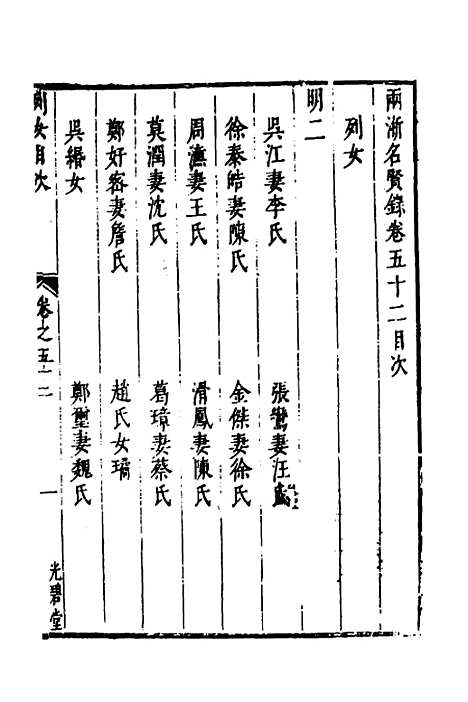 兩浙名賢錄卷五十二目次
列女
明二
吳江妻李氏　張鸞妻汪
徐泰皓妻陳氏　金傑妻徐氏
周濂妻王氏　滑鳳妻陳氏
莫潤妻沈氏　葛璋妻蔡氏
鄭好容妻詹氏　趙氏女璚
吳緡女　鄭璽妻魏氏
列女目次　卷之五十二　一　光碧堂